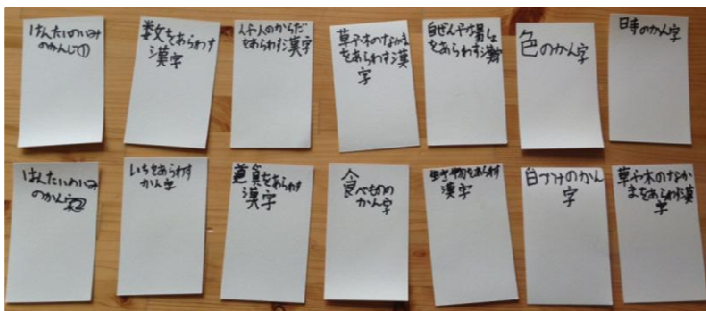 はんたいのいみ
のかんじ①
数をあらわす
漢字
人や人のからだ
をあらわす漢字
草や木のなかま
をあらわす漢
字
自ぜんや場しょ
をあらわす漢字
色のかん字
日時のかん字
はんたいのいみ
のかん字②
いちをあらわす
かん字
道具をあらわす
漢字
食べものの
かん字
生き物をあらわす
漢字
日づけのかん
字
草や木のなか
まをあらわす漢
字